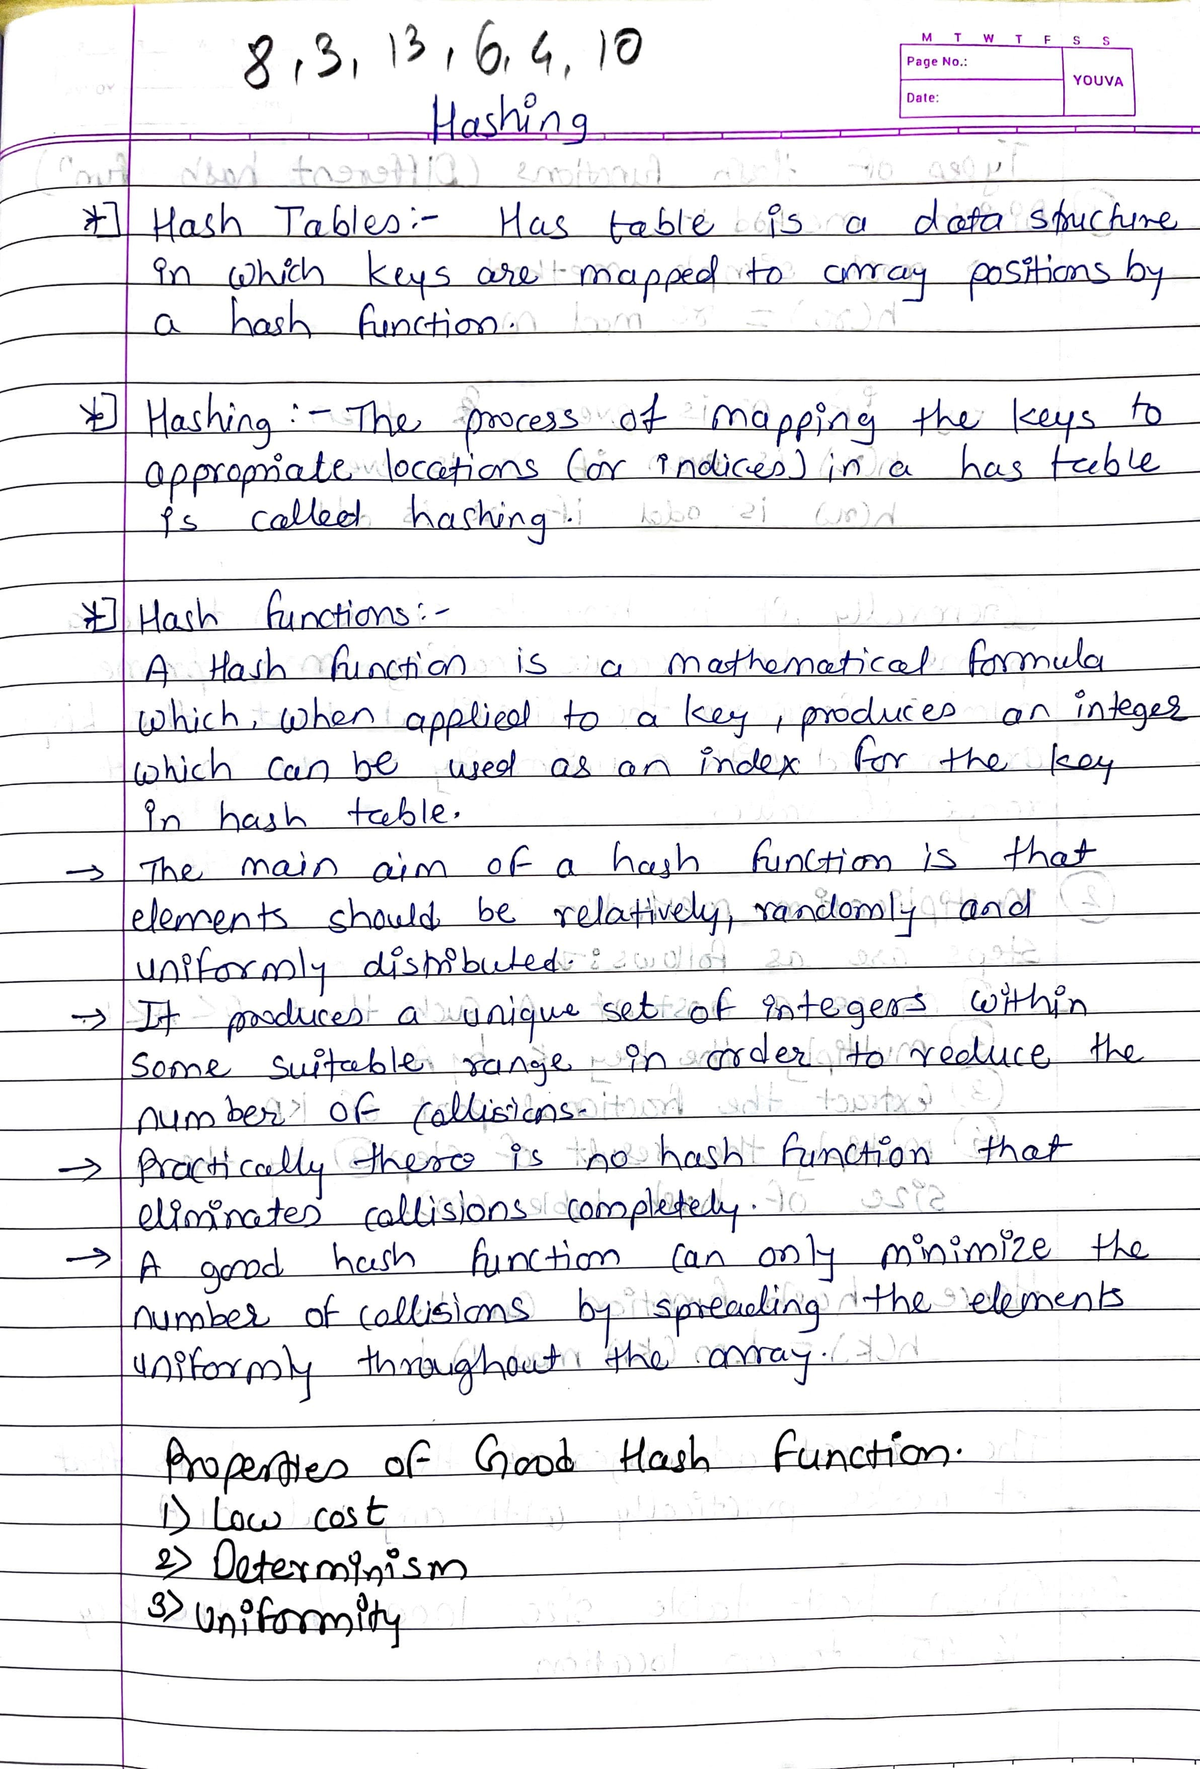 8, 3, 13, 6, 4, 10
M T W T F S S
Page No.:
YOUVA
Date:
Hashing
*] Hash Tables:- Has table is a data structure
in which keys are mapped to array positions by
a hash function.
*] Hashing :- The process of mapping the keys to
appropriate locations (or indices) in a has table
is called hashing.
*] Hash functions:-
A Hash function is a mathematical formula
which, when applied to a key, produces an integer
which can be used as an index for the key
in hash table.
→ The main aim of a hash function is that
elements should be relatively, randomly and
uniformly distributed.
→ It produces a unique set of integers within
some suitable range in order to reduce the
number of collisions.
→ Practically there is no hash function that
eliminates collisions completely.
→ A good hash function can only minimize the
number of collisions by spreading the elements
uniformly throughout the array.
Properties of Good Hash Function.
1) Low cost
2) Determinism
3) Uniformity